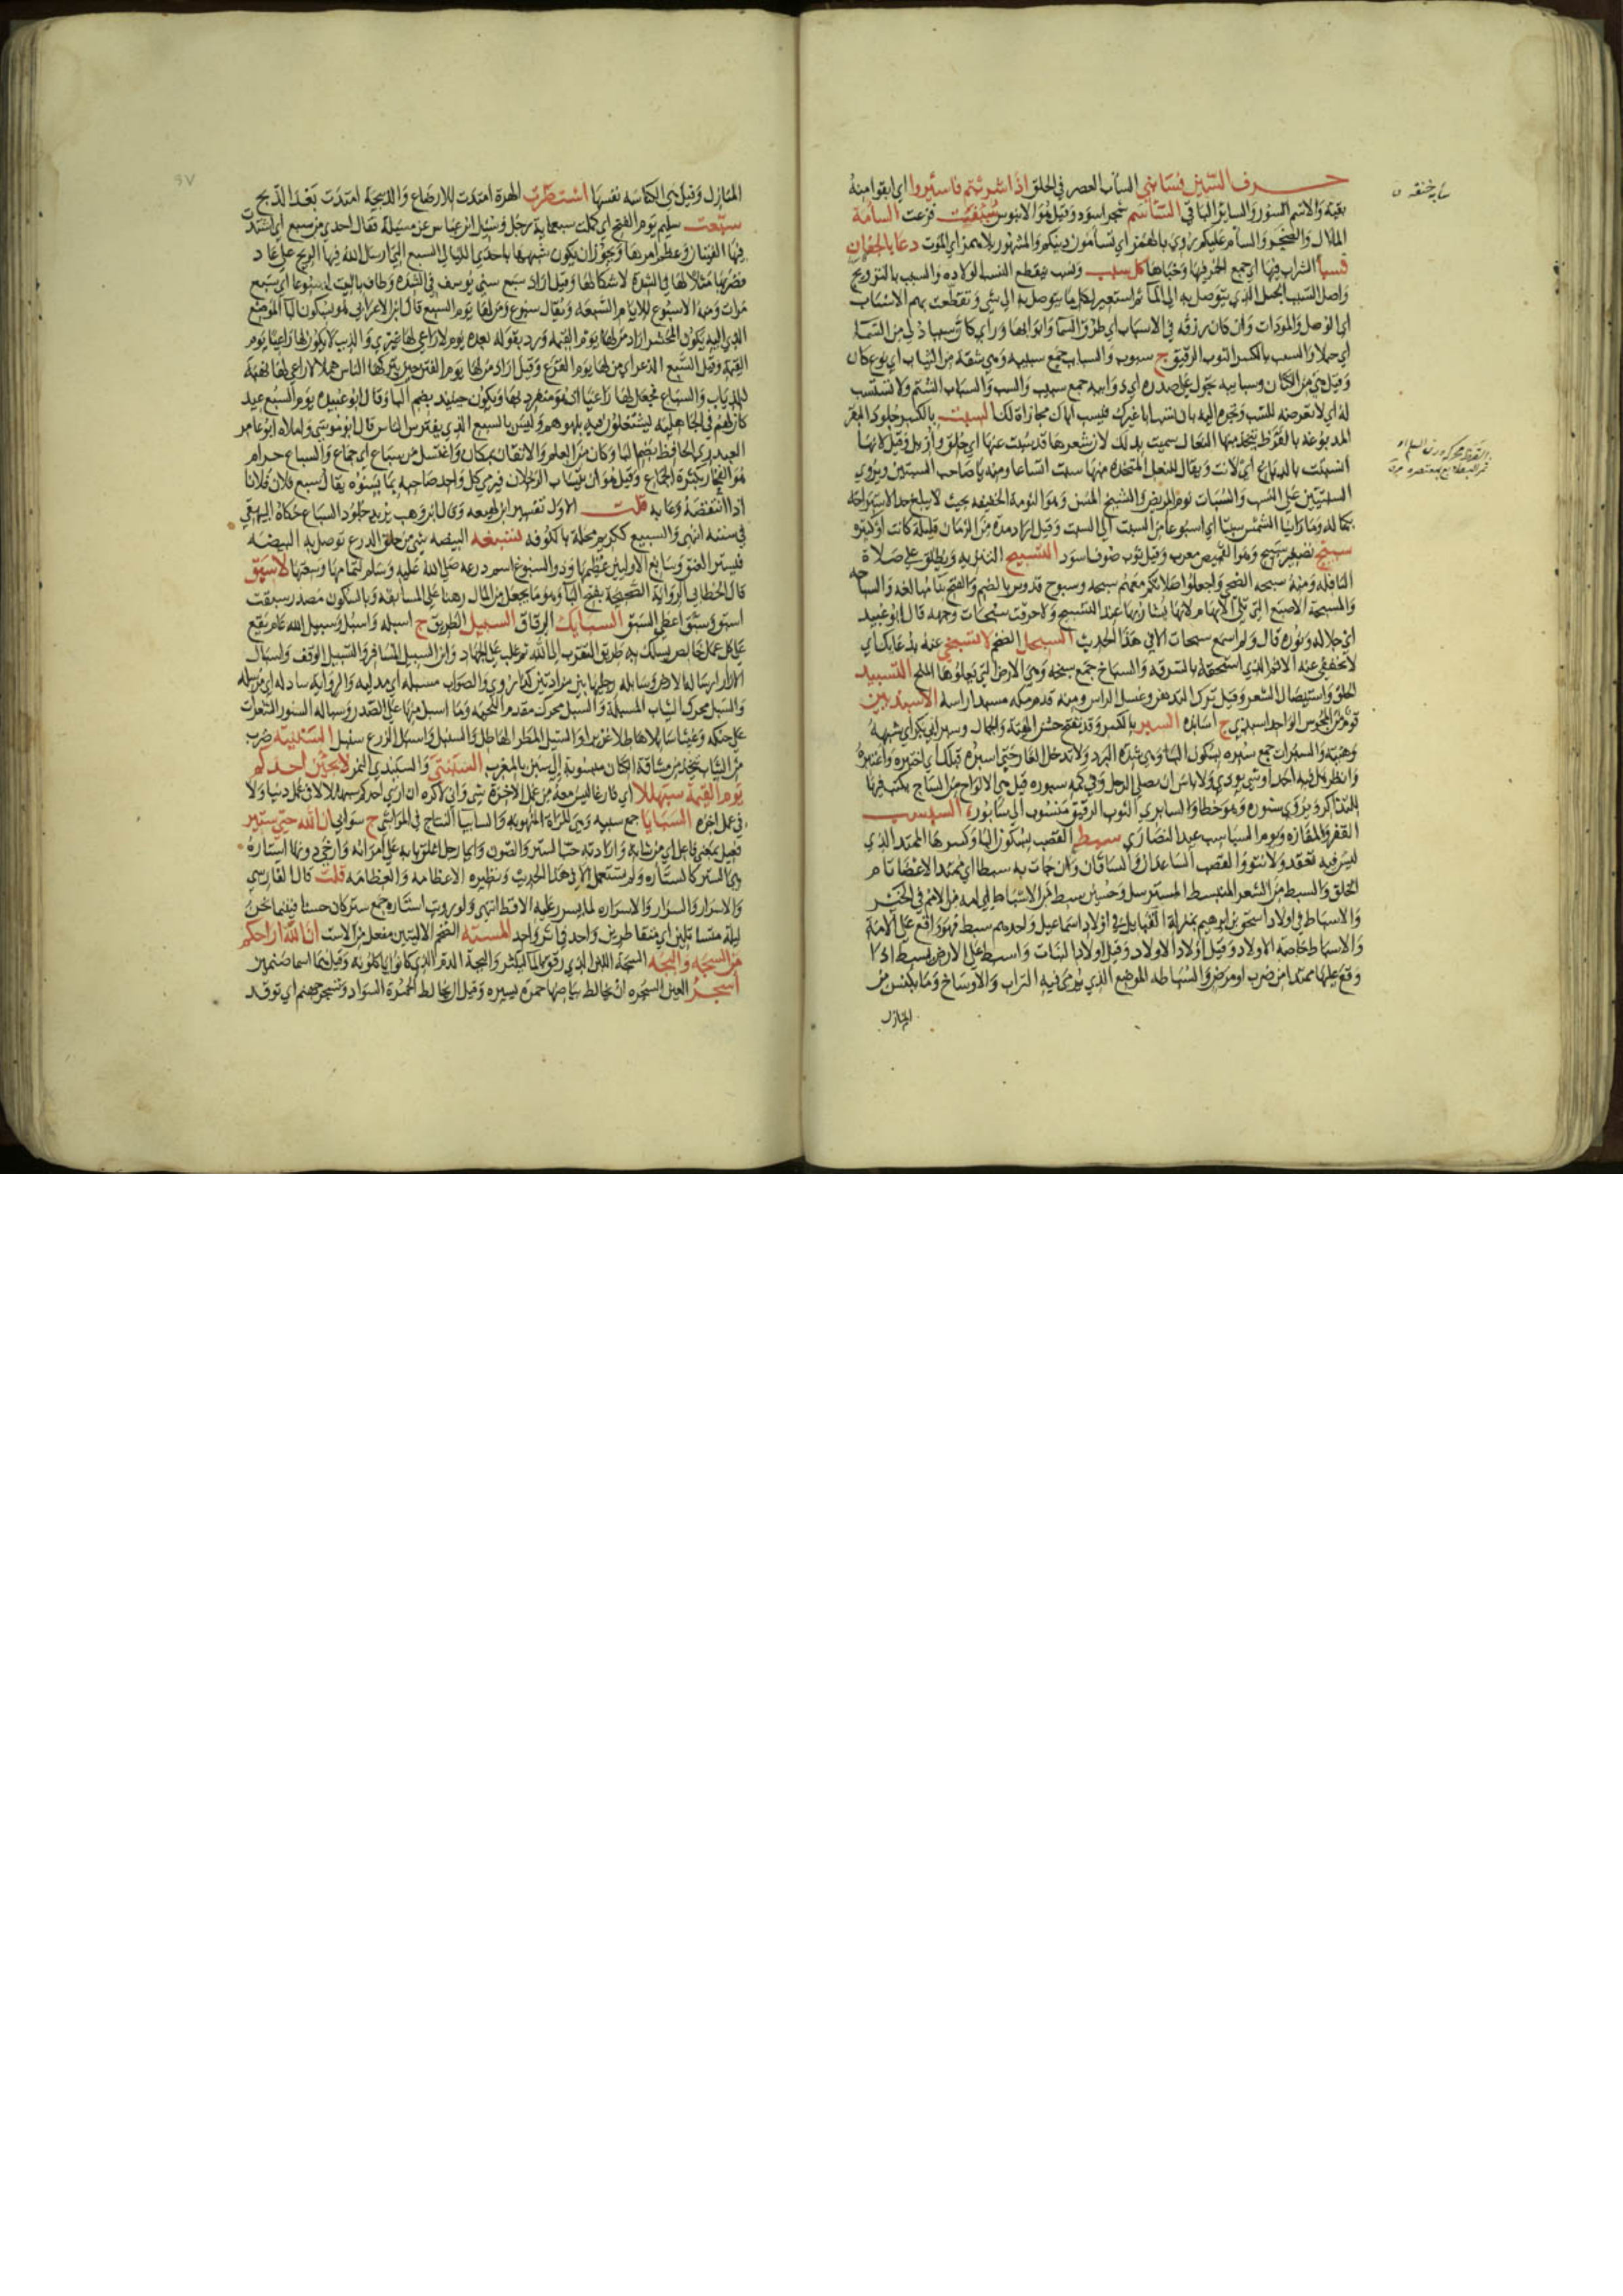 حرف السين فسأبني السأب العصر في الحلق اذا شربتم فاسئروا اي ابقوا منه
بقية والاسم السؤر والسائر الباقي الساسم شجر اسود وقيل هو الابنوس فزعت السآمة
الملال والضجر والسأم عليكم روي بالهمز اي تسأمون دينكم والمشهور بلا همز اي الموت دعا بالجفان
فسبأ الشراب فيها اي جمع الخمر فيها وخبأها كل سبب ونسب ينقطع النسب الولادة والسبب بالتزويج
واصل السبب الحبل الذي يتوصل به الى الماء ثم استعير لكل ما يتوصل به الى شي وتقطعت بهم الاسباب
اي الوصل والمودات وان كان رزقه في الاسباب اي طرق السما وابوابها وراى كان سببا دلي من السما
اي حبلا والسب بالكسر الثوب الرقيق ج سبوب والسبايب جمع سبيبة وهي شقة من الثياب اي نوع كان
وقيل هي من الكتان
له اي لا تعرضه للسب وتجره اليه بان تسب ابا غيرك فيسب اباك مجازاة لك السبت بالكسر جلود البقر
المدبوغة بالقرظ يتخذ منها النعال سميت بذلك لان شعرها قد سبت عنها اي حلق وازيل وقيل لانها
انسبتت بالدباغ اي لانت ويقال للنعل المتخذة منها سبت اتساعا ومنه يا صاحب السبتين ويروى
السبتيتين على النسب والسبات نوم المريض والشيخ المسن وهو النومة الخفيفة
وما راينا الشمس سبتا اي اسبوعا من السبت الى السبت وقيل اراد مدة من الزمان قليلة كانت او كثيرة
سبيج تصغير سبيج وهو القميص معرب وقيل ثوب صوف اسود التسبيح التنزيه ويطلق على صلاة
النافلة ومنه سبحة الضحى واجعلوا صلاتكم معهم سبحة وسبوح قدوس بالضم والفتح بنا مبالغة والسباحة
والمسبحة الاصبع التي تلي الابهام لانها يشار بها عند التسبيح ولاحرقت سبحات وجهه قال ابو عبيد
اي جلاله ونوره قال ولم اسمع سبحات الا في هذا الحديث السبحل الضخم لا تسبخي عنه بدعائك اي
لا تخففي عنه الاثم الذي استحقه بالسرقة والسباخ جمع سبخة وهي الارض التي تعلوها الملح التسبيد
الحلق واستيصال الشعر وقيل ترك التدهن وغسل الراس ومنه قدم مكة مسبدا راسه الاسبذيين
قوم من المجوس الواحد اسبذي ج اسابذة السبر بالكسر وقد يفتح حسن الهيئة والجمال
وهيئته والسبرات جمع سبرة بسكون البا وهي شدة البرد ولا تدخل الغار حتى اسبره قبلك اي اختبره واعتبره
وانظر هل فيه احد او شي يوذي ولا باس ان يصلي الرجل وفي كمه سبورة قيل هي الالواح من الساج يكتب فيها
للتذاكر ويروى ستورة وهو خطا والسابري الثوب الرقيق منسوب الى سابور السبسب
القفر والمفازة ويوم السباسب عيد النصارى سبط القصب بسكون البا وكسرها الممتد الذي
ليس فيه تعقد ولا نتو والقصب الساعدان والساقان وان جات به سبطا اي ممتد الاعضا تام
الخلق والسبط من الشعر المنبسط المسترسل وحسين سبط من الاسباط اي امة من الامم في الخير
والاسباط في اولاد اسحق بن ابراهيم بمنزلة القبايل في اولاد اسماعيل واحدهم سبط فهو واقع على الامة
والاسباط خاصة الاولاد وقيل اولاد الاولاد وقيل اولاد البنات واسبط على الارض يسبط اذا
وقع عليها ممتدا من ضرب او مرض والسباطة الموضع الذي يرمى فيه التراب والاوساخ وما يكنس من
المنازل
المنازل وقيل هي الكناسة نفسها اسبطرت الهرة امتدت للارضاع والذبيحة امتدت بعد الذبح
سبعت سليم يوم الفتح اي كملت سبعماية رجل وسئل ابن عباس عن مسئلة فقال احدى من سبع اي اشتدت
فيها الفتيا وعظم امرها ويجوز ان يكون شبهها باحدى الليالي السبع التي ارسل الله فيها الريح على عاد
فضربها مثلا لها في الشدة لاشكالها وقيل اراد سبع سني يوسف في الشدة وطاف بالبيت اسبوعا اي سبع
مرات ومنه الاسبوع للايام السبعة ويقال سبوع ومن لها يوم السبع قال ابن الاعرابي هو بسكون البا الموضع
الذي اليه يكون المحشر اراد من لها يوم القيمة ورد بقوله بعده يوم لا راعي لها غيري والذيب لا يكون لها راعيا يوم
القيمة وقيل السبع الذعر اي من لها يوم الفزع وقيل اراد من لها يوم الفتن حين يتركها الناس هملا لا راعي لها نهبة
للذياب والسباع فجعل لها راعيا اذ هو منفرد بها ويكون حينئذ بضم البا وقال ابو عبيدة يوم السبع عيد
كان لهم في الجاهلية يشتغلون فيه بلهوهم وليس بالسبع الذي يفترس الناس قال ابو موسى واملاه ابو عامر
العبدري الحافظ بضم البا وكان من العلم والاتقان بمكان واغتسل من سباع اي جماع والسباع حرام
هو الفخار بكثرة الجماع وقيل هو ان يتساب الرجلان فيرمي كل واحد صاحبه بما يسوءه يقال سبع فلان فلانا
اذا انتقصه وعابه قلت الاول تفسير ابن لهيعة وقال ابن وهب يريد جلود السباع حكاه البيهقي
في سننه انتهى والسبيع ككريم محلة بالكوفة تسبغة البيضة شي من حلق الدرع توصل به البيضة
فيستر العنق وسابغ الاليتين عظيمهما وذو السبوغ اسم درعه صلى الله عليه وسلم لتمامها وسعتها لا سبق
قال الخطابي الرواية الصحيحة بفتح البا وهو ما يجعل من المال رهنا على المسابقة وبالسكون مصدر سبقت
اسبق وسبق اعطى السبق السبايك الرقاق السبيل الطريق ج اسبلة واسبل وسبيل الله عام يقع
على كل عمل خالص يسلك به طريق التقرب الى الله ثم غلب على الجهاد وابن السبيل المسافر والتسبيل الوقف واسبال
الازار ارساله الى الارض وسابلة رجليها بين مزادتين كذا روي والصواب مسبلة اي مدلية والرواية سادلة اي مرسلة
والسبل محرك الثياب المسبلة والسبلة محرك مقدم اللحية وما اسبل منها على الصدر
السبل المطر الهاطل والسنبل واسبل الزرع سنبل السبنية ضرب
من الثياب تتخذ من مشاقة الكتان منسوبة الى سبن بالمغرب السبنتى والسبندى النمر لا يجيئن احدكم
يوم القيمة سبهللا اي فارغا ليس معه من عمل الاخرة شي واني لاكره ان ارى احدكم سبهللا لا في عمل دنيا ولا
في عمل اخرة السبايا جمع سبية وهي المراة المنهوبة والسابيا النتاج في المواشي ج سوابي ان الله حيي ستير
فعيل بمعنى فاعل اي من شانه وارادته حب الستر والصون وايما رجل اغلق بابه على امراته وارخى دونها استارة
هي الستر كالستارة ولم تستعمل الا في هذا الحديث ونظيره الاعظامة والعظامة قلت قال الفارسي
والاسرار والسرار والاسرارة لما يبس عليه الاقط انتهى ولو رويت استاره جمع ستر كان حسنا فبينما نحن
ليلة متساتلين اي متقاطرين واحد في اثر واحد المستة الضخم الاليتين مفعل من الاست ان الله اراحكم
من السجة والبجة السجة اللبن الذي رقق بالما ليكثر والبجة الدم الذي كانوا ياكلونه وقيل هما اسما صنمين
اسجر العين السجرة ان يخالط بياضها حمرة يسيرة وقيل ان يخالط الحمرة السواد وتسجر جهنم اي توقد